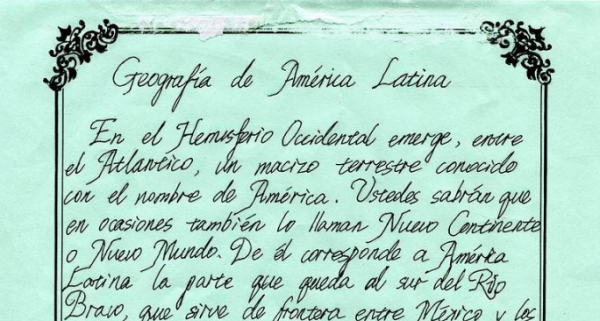 Geografía de América Latina
En el Hemisferio Occidental emerge, entre
el Atlantico, un macizo terrestre conocido
con el nombre de América. Ustedes sabrán que
en ocasiones también lo llaman Nuevo Continente
o Nuevo Mundo. De él corresponde a América
Latina la parte que queda al sur del Río
Bravo, que sirve de frontera entre México y los